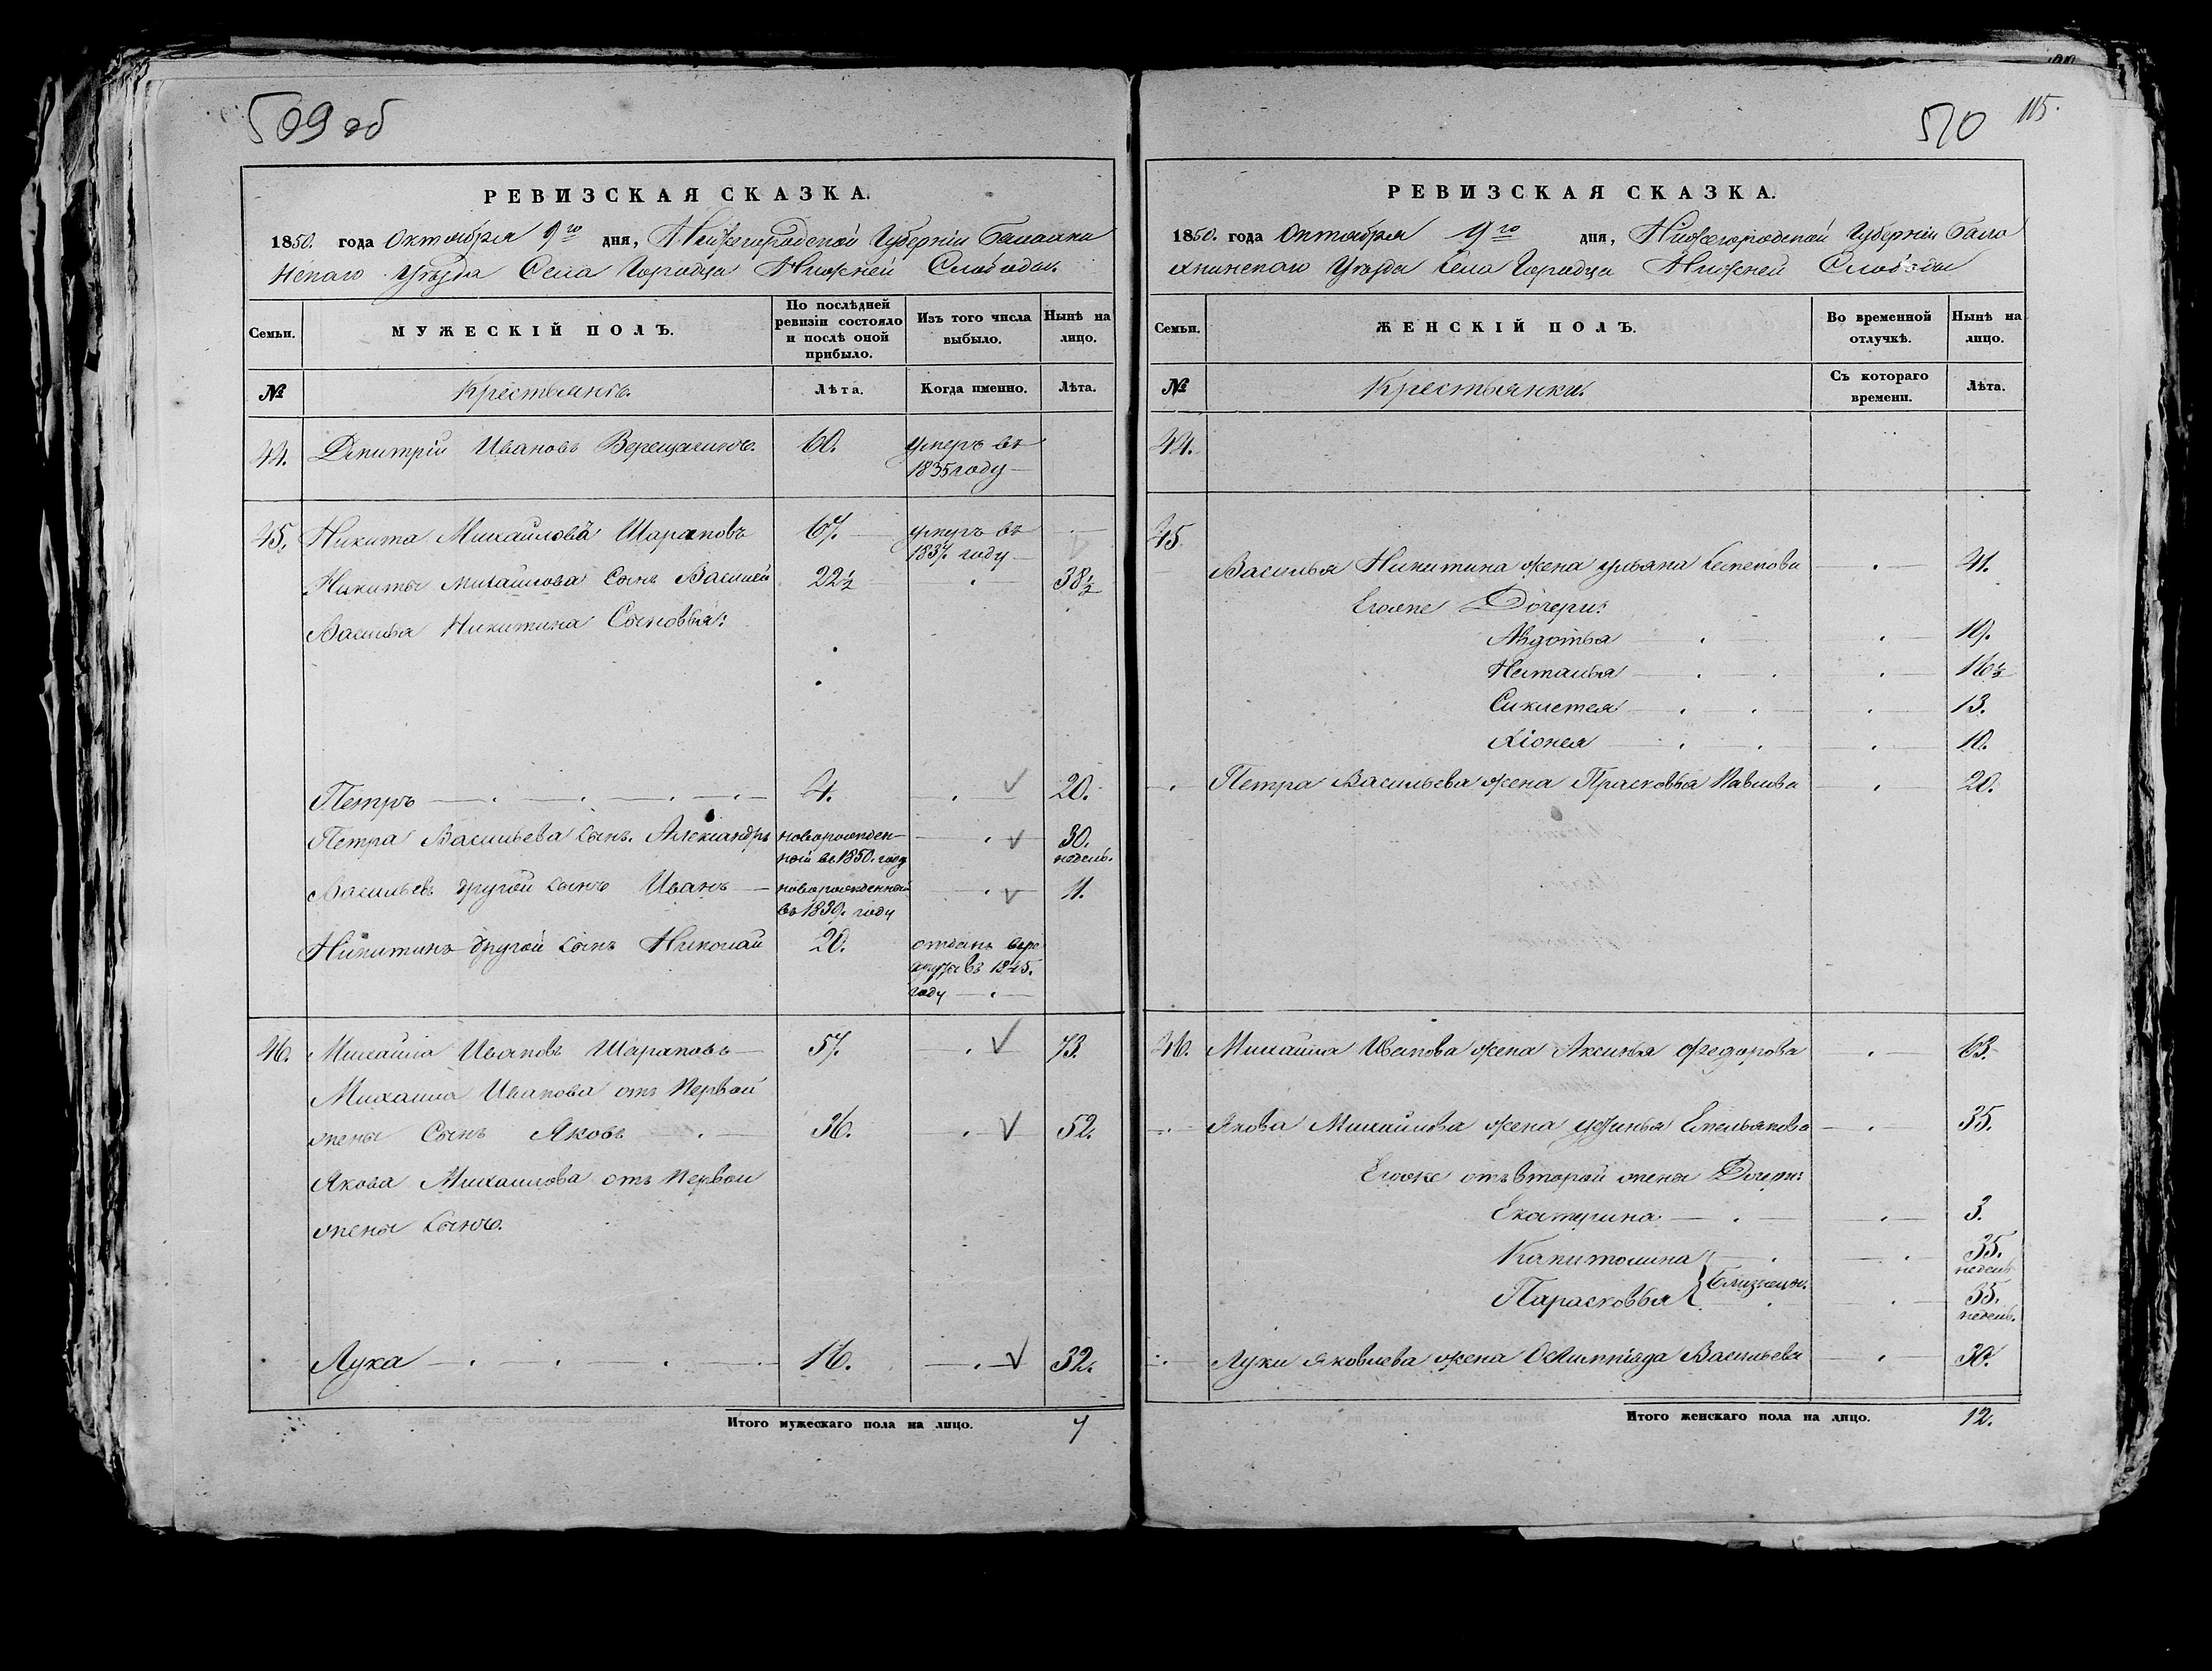 509 об
РЕВИЗСКАЯ СКАЗКА.
1850. года Октября 9го дня, Нижегородской Губернiи Балахни
нскаго Уѣзда Села Городца Нижней Слободы.
Семьи.
МУЖЕСКIЙ ПОЛЪ.
По послѣдней ревизiи состояло и послѣ оной прибыло.
Изъ того числа выбыло.
Нынѣ на лицо.
№
Крестьянъ.
Лѣта.
Когда именно.
Лѣта.
44. Дмитрiй Ивановъ Верещагинъ. 60. умеръ въ
1835 году
45. Никита Михайловъ Шараповъ 67. умеръ въ
1837. году
Никиты Михайлова Сынъ Василей 22½ 38½
Василья Никитина Сыновья:
Петръ 4. 20.
Петра Васильева сынъ Александръ новорожден- 30.
ной въ 1850. году недель.
Васильевъ другой сынъ Иванъ новорожденный 11.
въ 1839. году
Никитинъ другой сынъ Николай 20. отданъ въ ре
круты въ 1845.
году
46. Михайла Ивановъ Шараповъ 57. 73.
Михайла Иванова отъ первой
жены Сынъ Яковъ 36. 52.
Якова Михайлова отъ первой
жены сынъ.
Лука 16. 32.
Итого мужескаго пола на лицо. 7
510 115.
РЕВИЗСКАЯ СКАЗКА.
1850. года Октября 9го дня, Нижегородской Губернiи Бала
хнинскаго Уѣзда Села Городца Нижней Слободы
Семьи.
ЖЕНСКIЙ ПОЛЪ.
Во временной отлучкѣ.
Нынѣ на лицо.
№
Крестьянки.
Съ котораго времени.
Лѣта.
44.
45
Василья Никитина жена Ульяна Семенова 41.
Егоже Дочери:
Авдотья 19.
Наталья 16½
Сиклетея 13.
Хiонея 10.
Петра Васильева жена Прасковья Павлова 20.
46. Михайла Иванова жена Аксинья Федорова 63.
Якова Михайлова жена Устинья Емельянова 35.
Егоже отъ второй жены Дочери:
Екатерина 3.
Капитолина 35. недель
близнецы.
Парасковья 35. недель.
Луки Яковлева жена Олимпiада Васильева 30.
Итого женскаго пола на лицо. 12.